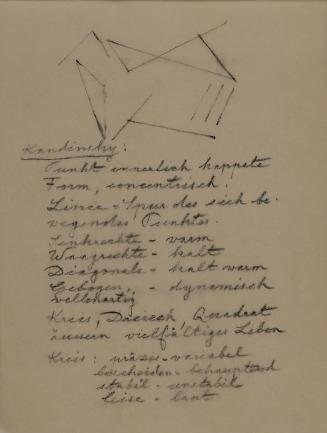 Kandinsky:
Punkt innerlich knappste
Form, concentrisch.
Linie = Spur des sich be-
wegenden Punktes.
Senkrechte - warm
Waagrechte - kalt
Diagonale - kalt warm
Gebogen, - dynamisch
wellenartig
Kreis, Dreieck Quadrat
äussern vielfältiges Leben
Kreis: präzis - variabel
bescheiden - behauptend
stabil - unstabil
leise - laut